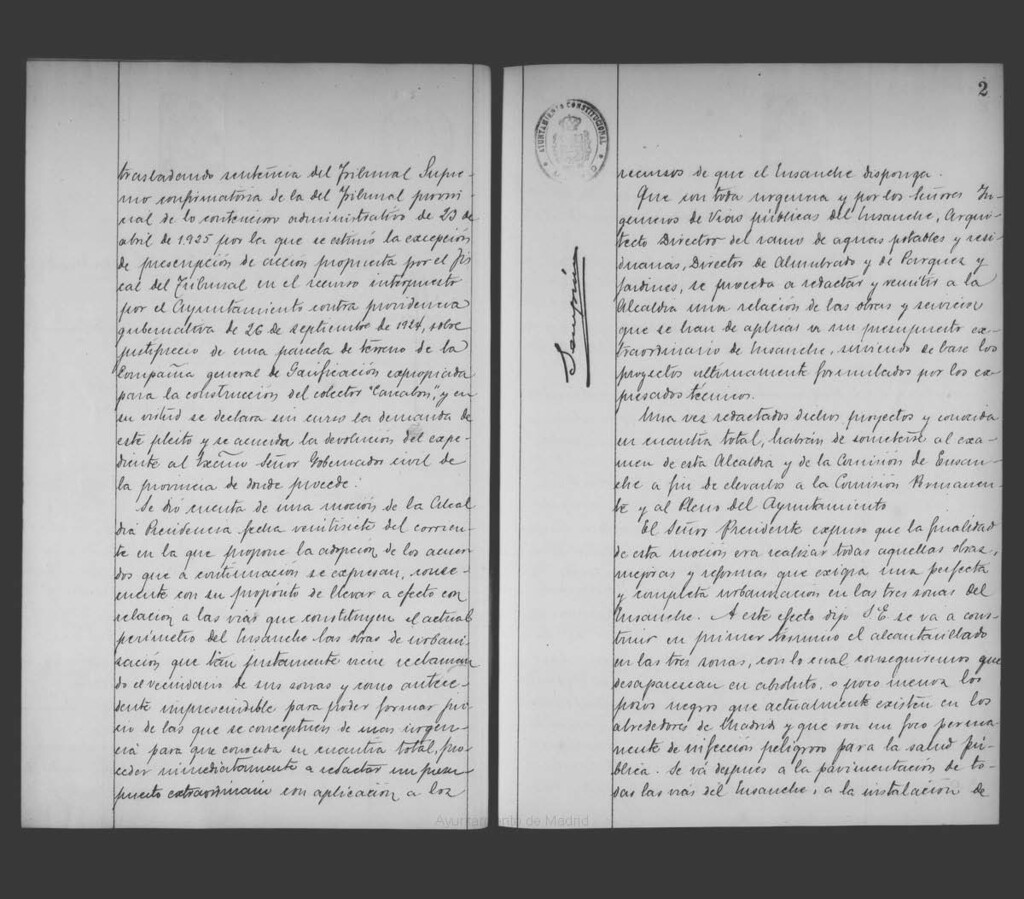 trasladando sentencia del Tribunal Supre-
mo confirmatoria de la del Tribunal provin-
cial de lo contencioso administrativo de 23 de
abril de 1925 por la que se estimó la excepción
de prescripción de acción propuesta por el Fis-
cal del Tribunal en el recurso interpuesto
por el Ayuntamiento contra providencia
gubernativa de 26 de septiembre de 1924, sobre
justiprecio de una parcela de terreno de la
Compañia general de Gasificación expropiada
para la construcción del colector "Carcabon", y en
su virtud se declara sin curso la demanda de
este pleito y se acuerda la devolución del expe-
diente al Excmo Señor Gobernador civil de
la provincia de donde procede.
Se dió cuenta de una moción de la Alcal
dia Presidencia fecha veintisiete del corrien-
te en la que propone la adopción de los acuer-
dos que a continuación se expresan, conse-
cuente con su proposito de llevar a efecto con
relación a las vias que constituyen el actual
perimetro del Ensanche las obras de urbani-
zación que tan justamente viene reclaman
do el vecindario de sus zonas y como antece-
dente imprescindible para poder formar jui-
cio de las que se conceptuen de mas urgen-
cia para que conocida su cuantia total, pro-
ceder inmediatamente a redactar un presu-
puesto extraordinario con aplicación a los
2
AYUNTAMIENTO CONSTITUCIONAL
recursos de que el Ensanche disponga.
Que con toda urgencia y por los Señores In-
genieros de Vias públicas del Ensanche, Arqui-
tecto Director del ramo de aguas potables y resi-
duarias, Director de Alumbrado y de Parques y
Jardines, se proceda a redactar y remitir a la
Alcaldia una relación de las obras y servicios
que se han de aplicar a un presupuesto ex-
traordinario de Ensanche, sirviendo de base los
proyectos ultimamente formulados por los ex-
presados técnicos.
Una vez redactados dichos proyectos y conocida
su cuantia total, habrán de someterse al exa-
men de esta Alcaldia y de la Comisión de Ensan-
che a fin de elevarlos a la Comisión Permanen-
te y al Pleno del Ayuntamiento
El Señor Presidente expuso que la finalidad
de esta moción era realizar todas aquellas obras,
mejoras y reformas que exigia una perfecta
y completa urbanización en las tres zonas del
Ensanche. A este efecto dijo S.E. se va a cons-
truir en primer término el alcantarillado
en las tres zonas, con lo cual conseguiremos que
desaparezcan en absoluto, o poco menos los
pozos negros que actualmente existen en los
alrededores de Madrid y que son un foco perma-
nente de infección peligroso para la salud pú-
blica. Se vá despues a la pavimentación de to-
das las vias del Ensanche, a la instalación de
Ayuntamiento de Madrid